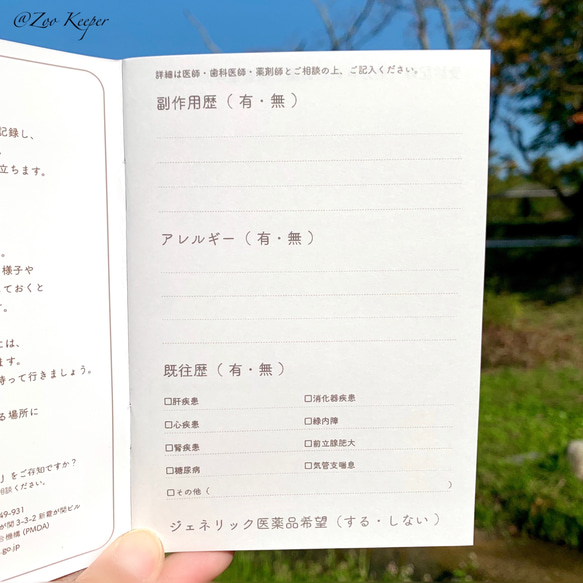 @Zoo Keeper
記録し、
立ちます。
様子や
ておくと
す。
には、
ます。
持って行きましょう。
る場所に
」をご存知ですか?
相談ください。
49-931
が関 3-3-2 新霞が関ビル
合機構 (PMDA)
.go.jp
詳細は医師・歯科医師・薬剤師とご相談の上、ご記入ください。
副作用歴 ( 有・無 )
アレルギー ( 有・無 )
既往歴 ( 有・無 )
□肝疾患 □消化器疾患
□心疾患 □緑内障
□腎疾患 □前立腺肥大
□糖尿病 □気管支喘息
□その他 ( )
ジェネリック医薬品希望 ( する・しない )